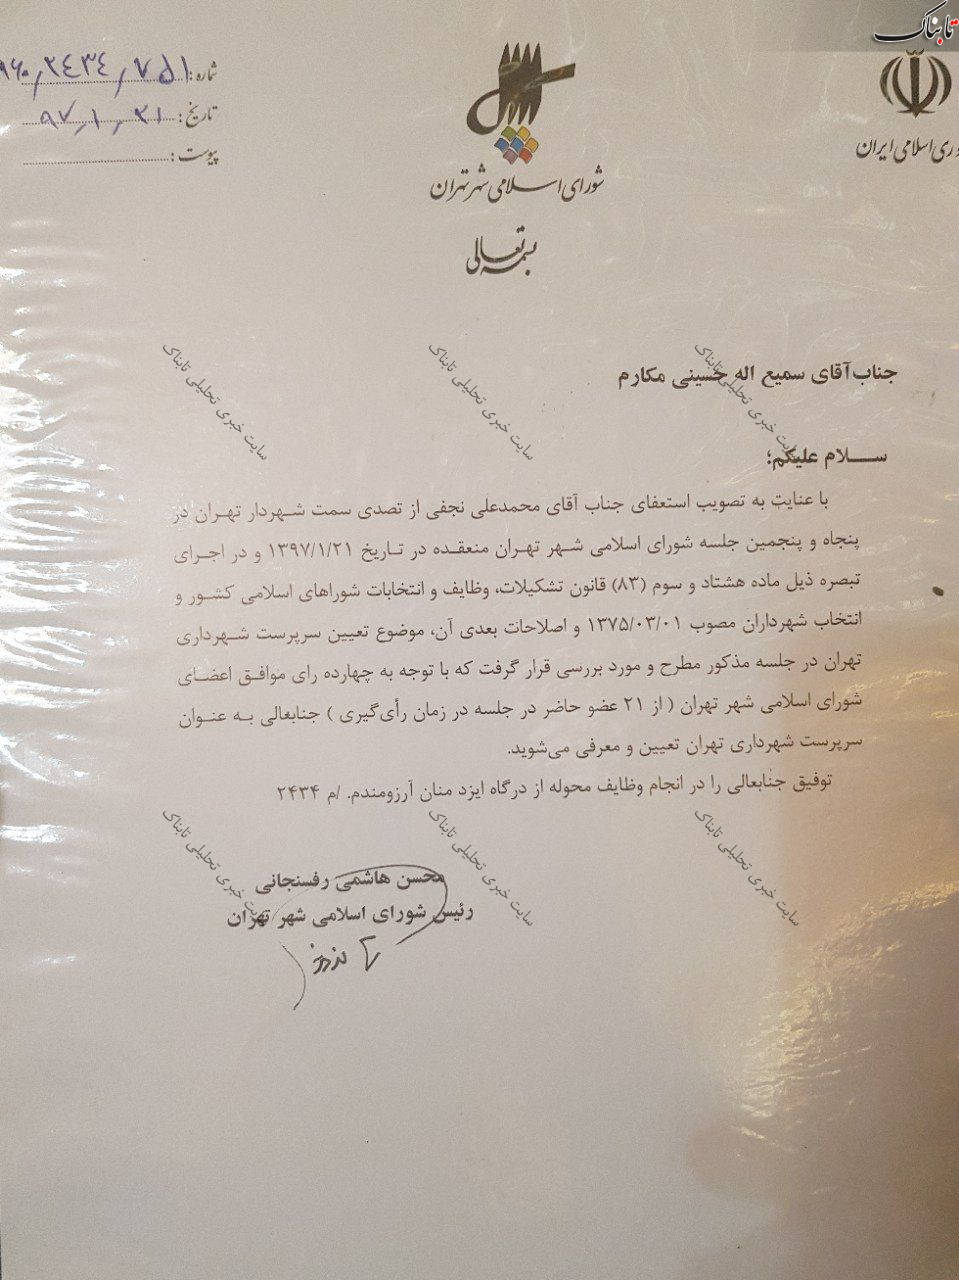 تابناک
ری اسلامی ایران
شورای اسلامی شهر تهران
بسمه تعالی
شماره: ۹۶۰/۲۴۳۴/۷۵۱
تاریخ: ۹۷/۱/۲۱
پیوست:
جناب آقای سمیع اله حسینی مکارم
ســـلام علیکم؛
با عنایت به تصویب استعفای جناب آقای محمدعلی نجفی از تصدی سمت شهردار تهران در
پنجاه و پنجمین جلسه شورای اسلامی شهر تهران منعقده در تاریخ ۱۳۹۷/۱/۲۱ و در اجرای
تبصره ذیل ماده هشتاد و سوم (۸۳) قانون تشکیلات، وظایف و انتخابات شوراهای اسلامی کشور و
انتخاب شهرداران مصوب ۱۳۷۵/۰۳/۰۱ و اصلاحات بعدی آن، موضوع تعیین سرپرست شهرداری
تهران در جلسه مذکور مطرح و مورد بررسی قرار گرفت که با توجه به چهارده رای موافق اعضای
شورای اسلامی شهر تهران ( از ۲۱ عضو حاضر در جلسه در زمان رأی‌گیری ) جنابعالی به عنوان
سرپرست شهرداری تهران تعیین و معرفی می‌شوید.
توفیق جنابعالی را در انجام وظایف محوله از درگاه ایزد منان آرزومندم. /م ۲۴۳۴
محسن هاشمی رفسنجانی
رئیس شورای اسلامی شهر تهران
سایت خبری تحلیلی تابناک
سایت خبری تحلیلی تابناک
سایت خبری تحلیلی تابناک
سایت خبری تحلیلی تابناک
سایت خبری تحلیلی تابناک
سایت خبری تحلیلی تابناک